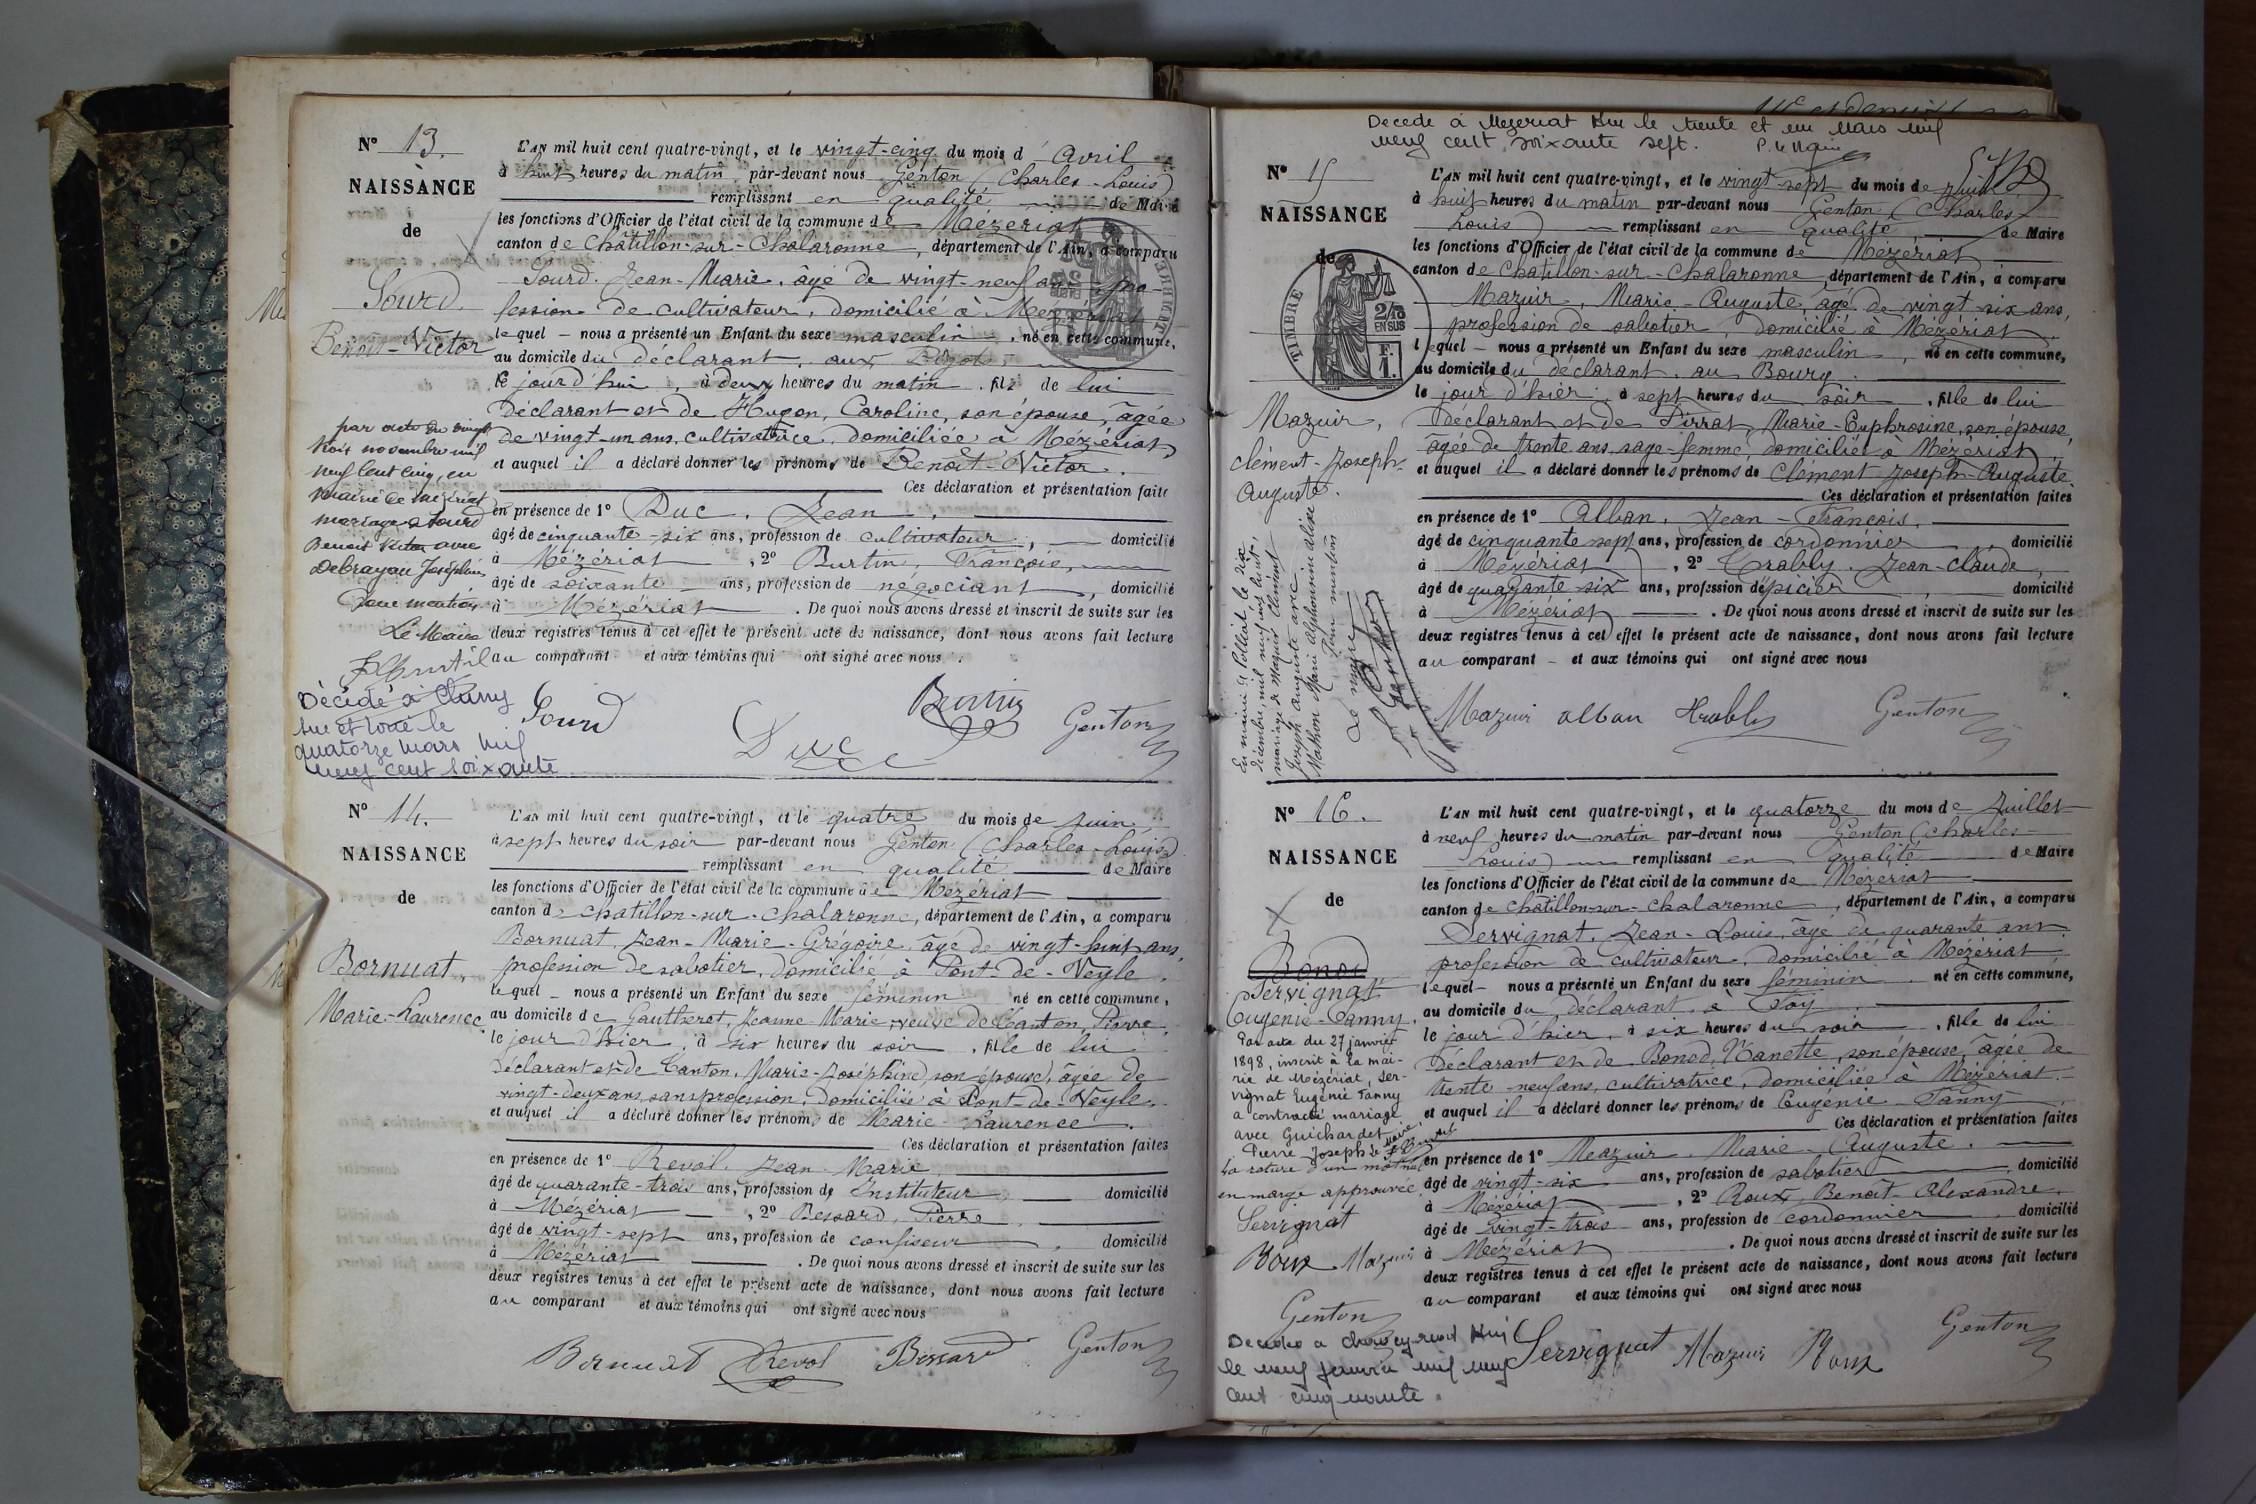 N° 13.
NAISSANCE
de
Sourd
Benoit-Victor
par acte du vingt
trois novembre mil
neuf cent cinq, en
mairie de Mézériat
mariage de Sourd
Benoit Victor avec
Debrayau Joséphine
Pour mention
Le Maire
Décédé à Cluny
Sne et Loire le
quatorze mars mil
neuf cent soixante
L'AN mil huit cent quatre-vingt, et le vingt-cinq du mois d'Avril
à huit heures du matin par-devant nous Genton (Charles-Louis)
remplissant en qualité de Maire
les fonctions d'Officier de l'état civil de la commune de Mézériat
canton de Châtillon-sur-Chalaronne, département de l'Ain, a comparu
Sourd Jean-Marie, âgé de vingt-neuf ans pro-
fession de cultivateur, domicilié à Mézériat
lequel nous a présenté un Enfant du sexe masculin, né en cette commune,
au domicile du déclarant, aux
le jour d'hui, à deux heures du matin, fils de lui
déclarant et de Hugon, Caroline, son épouse, âgée
de vingt-un ans, cultivatrice, domiciliée à Mézériat,
et auquel il a déclaré donner les prénoms de Benoît-Victor.
Ces déclaration et présentation faites
en présence de 1° Duc, Jean,
âgé de cinquante-six ans, profession de cultivateur, domicilié
à Mézériat, 2° Burtin, François,
âgé de soixante ans, profession de négociant, domicilié
à Mézériat. De quoi nous avons dressé et inscrit de suite sur les
deux registres tenus à cet effet le présent acte de naissance, dont nous avons fait lecture
au comparant et aux témoins qui ont signé avec nous.
Sourd Duc Burtin Genton
N° 14.
NAISSANCE
de
Bornuat,
Marie-Laurence.
L'AN mil huit cent quatre-vingt, et le quatre du mois de juin
à sept heures du soir par-devant nous Genton (Charles-Louis)
remplissant en qualité de Maire
les fonctions d'Officier de l'état civil de la commune de Mézériat
canton de Chatillon-sur-Chalaronne, département de l'Ain, a comparu
Bornuat, Jean-Marie-Grégoire, âgé de vingt-huit ans,
profession de sabotier, domicilié à Pont-de-Veyle,
lequel nous a présenté un Enfant du sexe féminin né en cette commune,
au domicile de Gautheret, Jeanne-Marie, veuve de Canton, Pierre,
le jour d'hier, à six heures du soir, fille de lui
déclarant et de Canton, Marie-Joséphine, son épouse, âgée de
vingt-deux ans, sans profession, domiciliée à Pont-de-Veyle,
et auquel il a déclaré donner les prénoms de Marie-Laurence.
Ces déclaration et présentation faites
en présence de 1° Revol, Jean-Marie
âgé de quarante-trois ans, profession de Instituteur domicilié
à Mézériat, 2° Bessard, Pierre
âgé de vingt-sept ans, profession de confiseur, domicilié
à Mézériat. De quoi nous avons dressé et inscrit de suite sur les
deux registres tenus à cet effet le présent acte de naissance, dont nous avons fait lecture
au comparant et aux témoins qui ont signé avec nous
Bornuat Revol Bessard Genton
Décédé à Mézériat Ain le trente et un mars mil
neuf cent soixante sept. P. le Maire
N° 15
NAISSANCE
de
TIMBRE
2/10
EN SUS
F.
1.
Mazuir,
Clément-Joseph-
Auguste.
En mairie de Polliat le dix
décembre, mil neuf cent huit,
mariage de Mazuir Clément
Joseph Auguste avec
Mathon Marie Alphonsine Alice
Pour mention
Le maire
L'AN mil huit cent quatre-vingt, et le vingt-sept du mois de juin
à huit heures du matin par-devant nous Genton (Charles-
Louis) remplissant en qualité de Maire
les fonctions d'Officier de l'état civil de la commune de Mézériat
canton de Chatillon-sur-Chalaronne, département de l'Ain, a comparu
Mazuir, Marie-Auguste, âgé de vingt-six ans,
profession de sabotier, domicilié à Mézériat
lequel nous a présenté un Enfant du sexe masculin, né en cette commune,
au domicile du déclarant, au Bourg
le jour d'hier, à sept heures du soir, fille de lui
déclarant et de Pirrat, Marie-Euphrosine, son épouse,
âgée de trente ans, sage-femme, domiciliée à Mézériat,
et auquel il a déclaré donner les prénoms de Clément-Joseph-Auguste.
Ces déclaration et présentation faites
en présence de 1° Alban, Jean-François,
âgé de cinquante sept ans, profession de cordonnier domicilié
à Mézériat, 2° Trably, Jean-Claude,
âgé de quarante-six ans, profession d'épicier, domicilié
à Mézériat. De quoi nous avons dressé et inscrit de suite sur les
deux registres tenus à cet effet le présent acte de naissance, dont nous avons fait lecture
au comparant et aux témoins qui ont signé avec nous
Mazuir alban Trably Genton
N° 16.
NAISSANCE
de
Bonod
Servignat
Eugénie-Fanny.
Par acte du 27 janvier
1898, inscrit à la mai-
rie de Mézériat, Ser-
vignat Eugénie Fanny
a contracté mariage
avec Guichardet
Pierre Joseph
La rature d'un mot nul
en marge approuvée.
Servignat
Roux Mazuir
Genton
Décédée à
le neuf janvier mil neuf
cent cinquante.
L'AN mil huit cent quatre-vingt, et le quatorze du mois de Juillet
à neuf heures du matin par-devant nous Genton (Charles-
Louis) remplissant en qualité de Maire
les fonctions d'Officier de l'état civil de la commune de Mézériat
canton de Chatillon-sur-Chalaronne, département de l'Ain, a comparu
Servignat, Jean-Louis, âgé de quarante ans
profession de cultivateur, domicilié à Mézériat
lequel nous a présenté un Enfant du sexe féminin né en cette commune,
au domicile du déclarant, à Foy
le jour d'hier, à six heures du soir, fille de lui
déclarant et de Bonod, Nanette, son épouse, âgée de
trente-neuf ans, cultivatrice, domiciliée à Mézériat.
et auquel il a déclaré donner les prénoms de Eugénie-Fanny
Ces déclaration et présentation faites
en présence de 1° Mazuir, Marie-Auguste.
âgé de vingt-six ans, profession de sabotier, domicilié
à Mézériat, 2° Roux, Benoît-Alexandre,
âgé de vingt-trois ans, profession de cordonnier, domicilié
à Mézériat. De quoi nous avons dressé et inscrit de suite sur les
deux registres tenus à cet effet le présent acte de naissance, dont nous avons fait lecture
au comparant et aux témoins qui ont signé avec nous
Servignat Mazuir Roux Genton